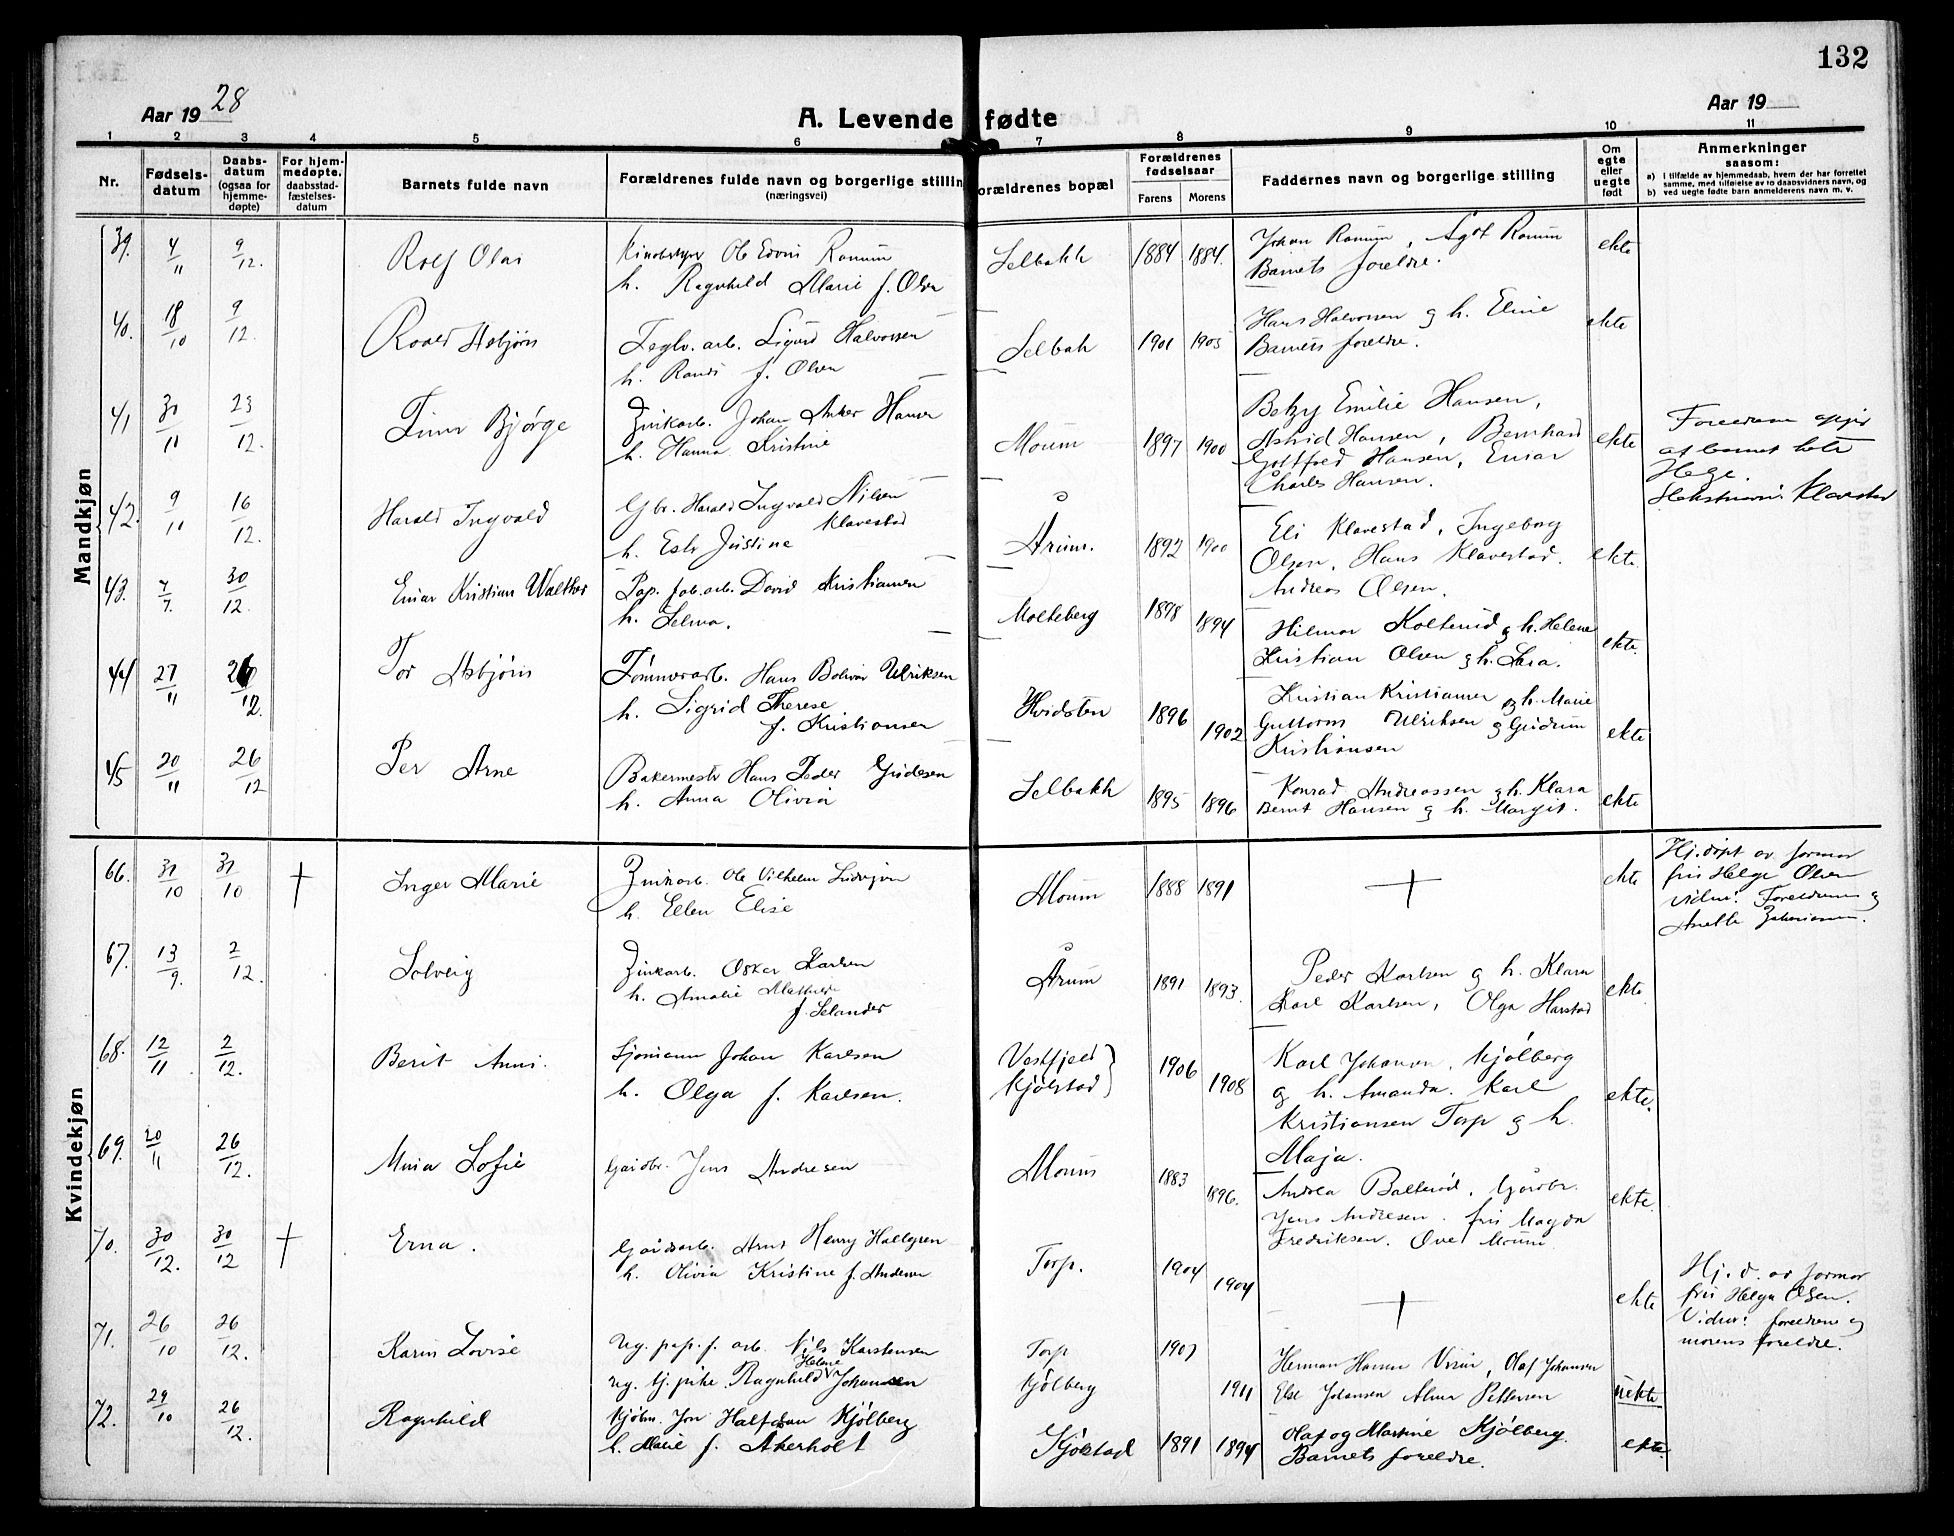 132
Aar 19 28
A. Levende fødte
Aar 19
1 2 3 4 5 6 7 8 9 10 11
Nr.
Fødsels-
datum
Daabs-
datum
(ogsaa for
hjemme-
døpte)
For hjem-
medøpte.
daabsstad-
fæstelses-
datum
Barnets fulde navn
Forældrenes fulde navn og borgerlige stillin
(næringsvei)
orældrenes bopæl
Forældrenes
fødselsaar
Farens Morens
Faddernes navn og borgerlige stilling
Om
egte
eller
uegte
født
Anmerkninger
saasom:
a) I tilfælde av hjemmedaab, hvem der har forrettet
samme, med tilføielse av to daabsvidners navn, og
b) ved uegte fødte barn anmelderens navn m. v.
Mandkjøn
39. 4/11 9/12. Rolf Olai
Ole Edvin Ramum
h. Ragnhild Marie f. Olsen
Selbakk 1884 1884.
Johan Ramum, Agot Ramum
Barnets foreldre.
ekte
40. 18/10 9/12. Roald Asbjørn
Teglv. arb. Sigurd Halvorsen
h. Randi f. Olsen
Selbak 1901 1905
Hans Halvorsen og h. Eline
Barnets foreldre.
ekte
41 30/11 23/12. Finn Bjørge
Zinkarb. Johan Anker Hansen
h. Hanna Kristine
Moum 1897 1900
Betzy Emilie Hansen,
Astrid Hansen, Bernhard
Gottfred Hansen, Einar
Charles Hansen.
ekte
at barnet
Hege.
Klavestad
42. 9/11 16/12. Harald Ingvald
Gbr. Harald Ingvald Nilsen
Klavestad
h. Justine
Årum. 1892 1900
Eli Klavestad, Ingeborg
Olsen, Hans Klavestad.
Andreas Olsen.
ekte.
43. 7/7. 30/12. Einar Kristian Walther
Pap. fab. arb. David Kristiansen
h. Selma.
Molteberg 1898 1894
Hilmar Kolterud og h. Helene
Kristian Olsen og h. Lara.
ekte.
44 27/11 26/12. Tor Asbjørn
Tømmerarb. Hans Bolivar Ulriksen
h. Sigrid Therese
f. Kristiansen
Hvidsten 1896 1902
Kristian Kristiansen og h. Marie
Guttorm Ulriksen og Gudrun
Kristiansen
ekte
45 20/11 26/12 Per Arne
Bakermestr Hans Peder Gudesen
h. Anna Olivia
Selbakk 1895 1896
Konrad Andreassen og h. Klara
Bernt Hansen og h. Margit.
ekte
Kvindekjøn
66. 31/10 31/10 † Inger Marie
Zinkarb. Ole Vilhelm Ludvigsen
h. Ellen Elise
Moum 1888 1891
†
ekte
Hj. døpt av farmor
fru Helga Olsen
vidner: Foreldrene og
Anette Zakariassen.
67. 13/9. 2/12. Solveig
Zinkarb. Oskar Karlsen
h. Amalie Mathilde
f. Selander
Årum 1891 1893.
Peder Karlsen og h. Klara
Karl Karlsen, Olga Harstad
ekte.
68. 12/11 2/12. Berit Anni.
Sjømann Johan Karlsen
h. Olga f. Karlsen.
Vestfjeld
Kjølstad 1906 1908
Karl Johansen, Kjølberg
og h. Amanda. Karl
Kristiansen Torp og h.
Maja.
ekte.
69. 20/11 26/12. Sofie
Gårdbr. Jens Andresen
Moum 1883 1896.
Andrea Balterød, Gårdbr.
Jens Andresen. fru Magda
Fredriksen. Ove Moum.
ekte.
70. 30/12. 30/12 † Erna.
Gårdsarb. Arne Henry Hallgren
h. Olivia Kristine f. Andersen
Torp. 1904 1904
†
ekte
Hj. d. av farmor
fru Helga Olsen.
Vidner: foreldrene og
morens foreldre.
71. 26/10 26/12. Karin Lovise
Ug. pap. f. arb. Nils Karstensen
ug. tj. pike. Ragnhild Helene Johansen
Torp 1907
Kjølberg 1911
Herman Hansen Visur, Olaf Johansen
Else Johansen Alma Pettersen
uekte
72. 29/10 26/12. Ragnhild
Kjøbm. Jon Halfdan Kjølberg
h. Marie f. Akerholt
Kjølstad 1891 1894
Olaf og Martine Kjølberg.
Barnets foreldre.
ekte